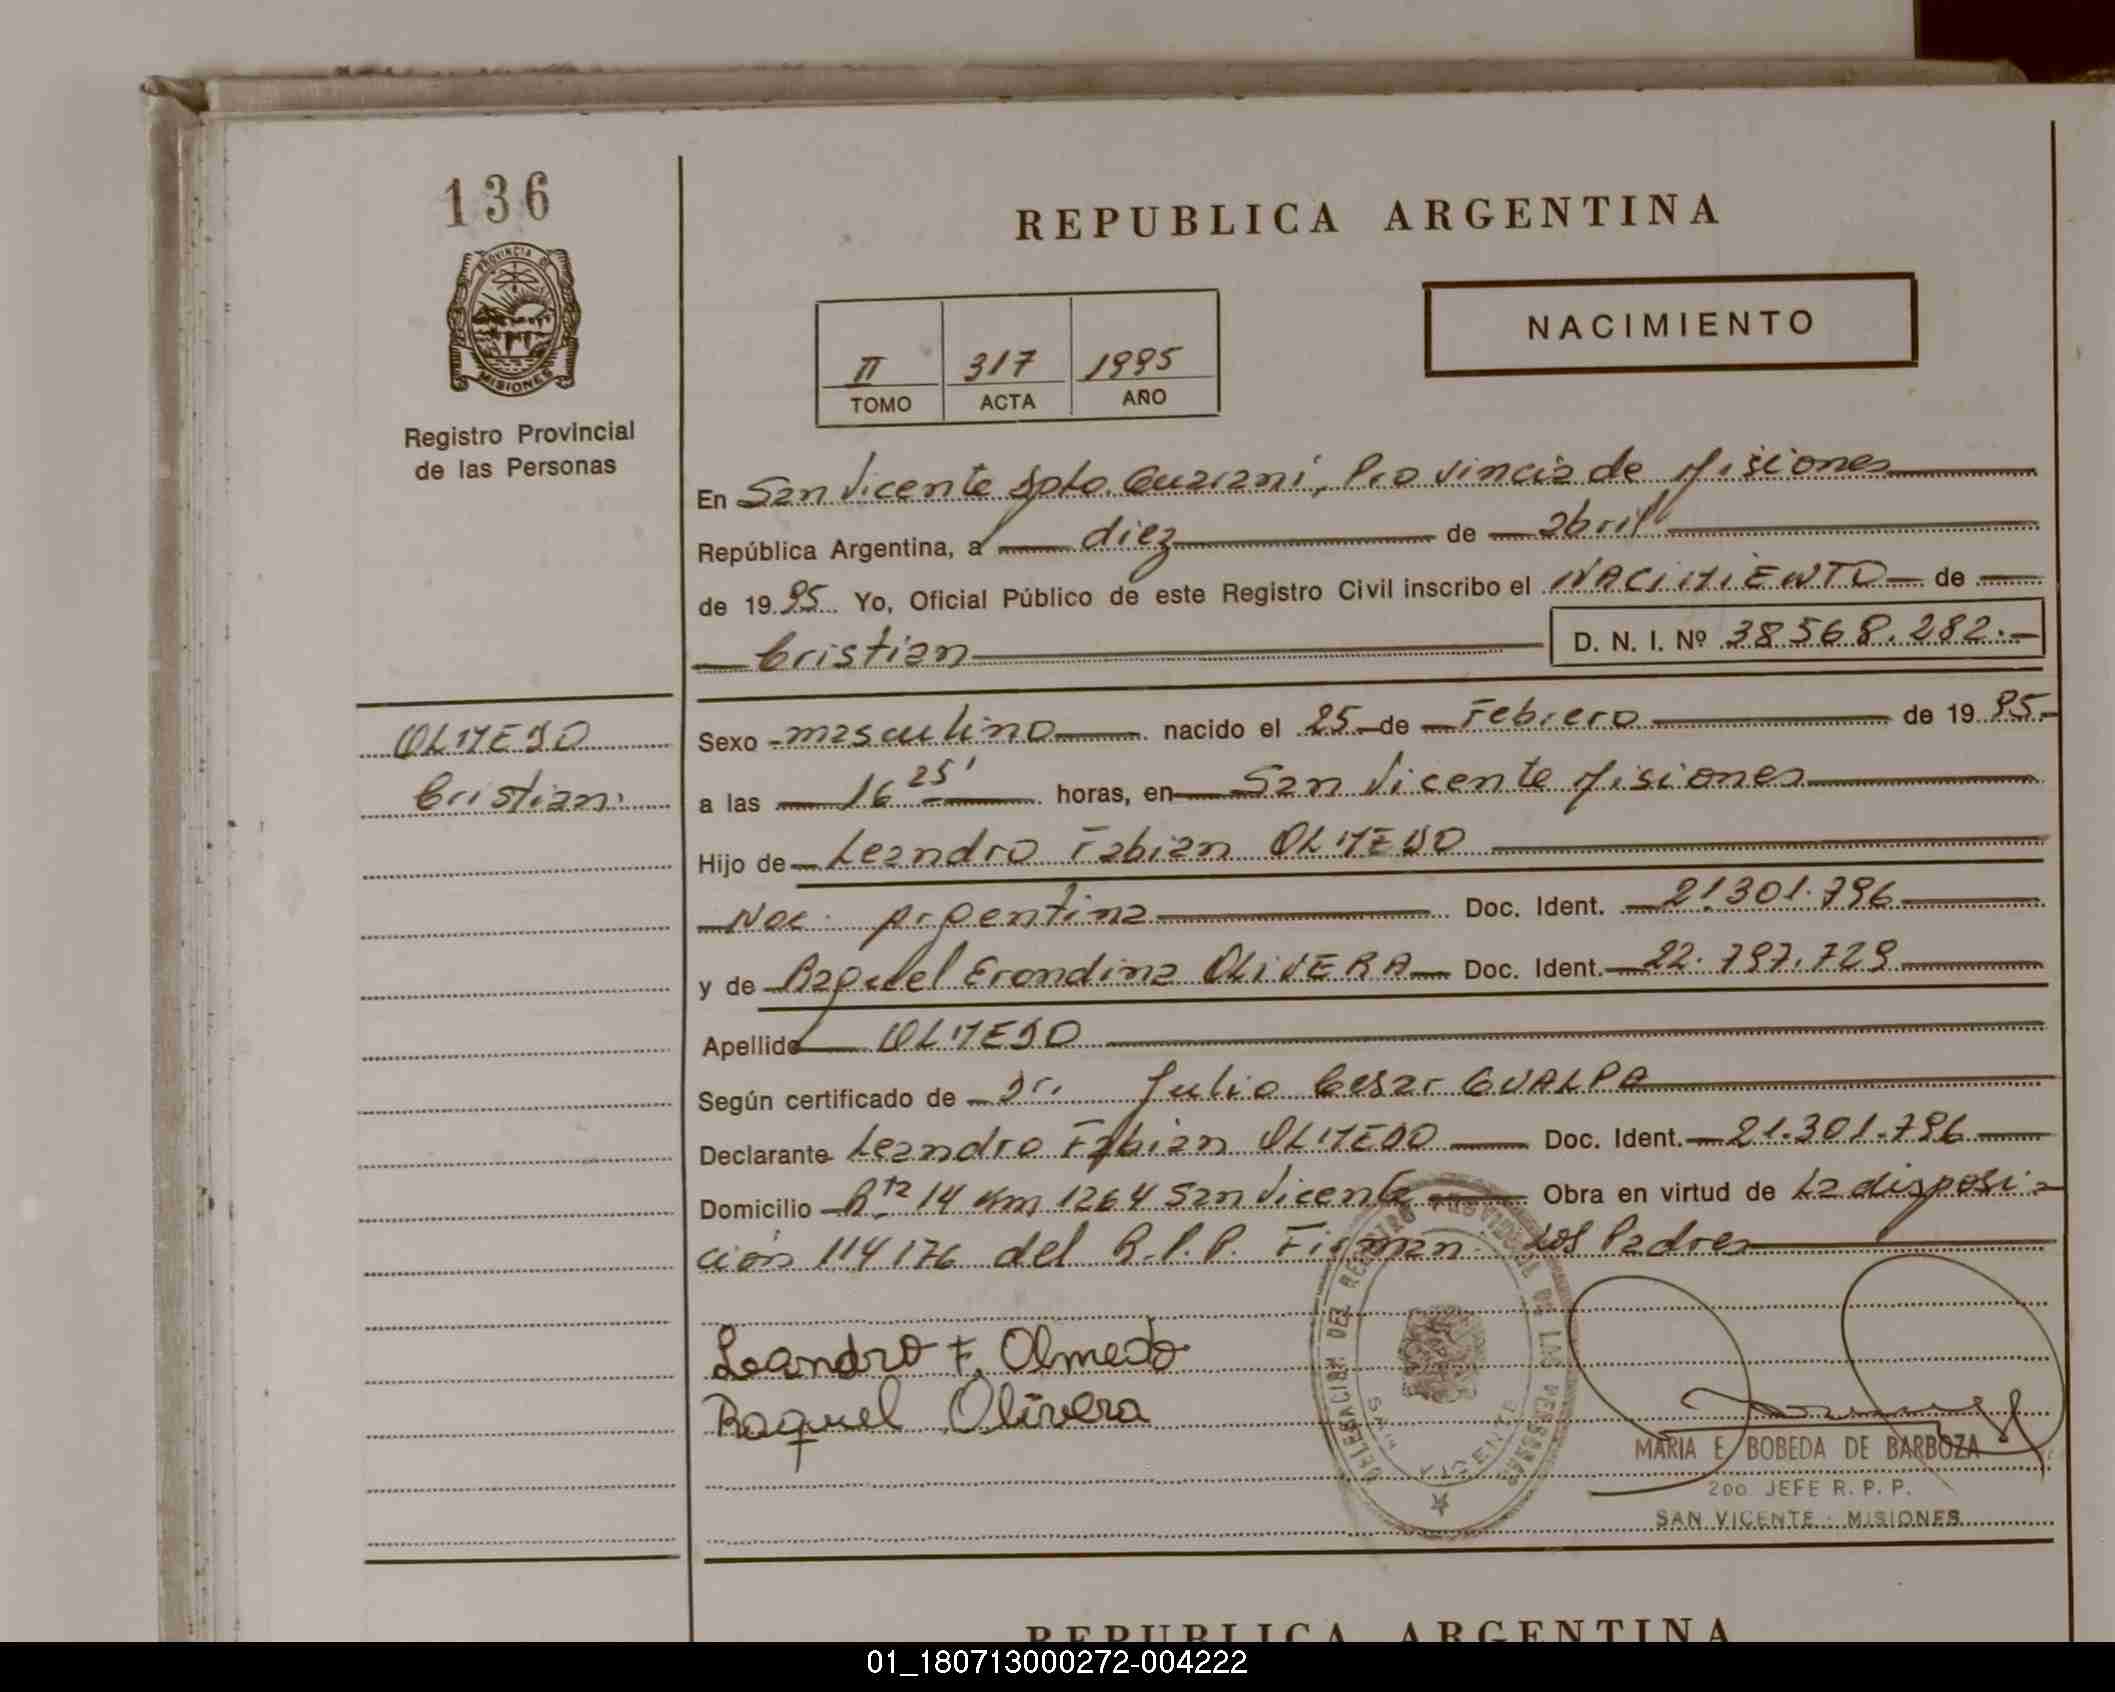 136
PROVINCIA DE
MISIONES
Registro Provincial
de las Personas
REPUBLICA ARGENTINA
NACIMIENTO
II 317 1995
TOMO ACTA AÑO
En San Vicente Dpto. Guarani, Provincia de Misiones
República Argentina, a diez de abril
de 1995 Yo, Oficial Público de este Registro Civil inscribo el NACIMIENTO de
Cristian D. N. I. Nº 38568.282.-
OLMEDO
Cristian.
Sexo masculino nacido el 25 de Febrero de 1995.-
a las 16 25' horas, en San Vicente Misiones
Hijo de Leandro Fabian OLMEDO
Nac. Argentina Doc. Ident. 21.301.796
y de Raquel Erondina OLIVERA Doc. Ident. 22.797.729
Apellido OLMEDO
Según certificado de Dr. Julio Cesar GUALPA
Declarante Leandro Fabian OLMEDO Doc. Ident. 21.301.796
Domicilio Rta 14 Km 1264 San Vicente Obra en virtud de la disposi-
ción 114/76 del R.P.P. Firman Los Padres
Leandro F. Olmedo
Raquel Olivera
DELEGACION DEL REGISTRO PROVINCIAL DE LAS PERSONAS
SAN VICENTE
MARIA E. BOBEDA DE BARBOZA
2do. JEFE R. P. P.
SAN VICENTE - MISIONES
REPUBLICA ARGENTINA
01_180713000272-004222